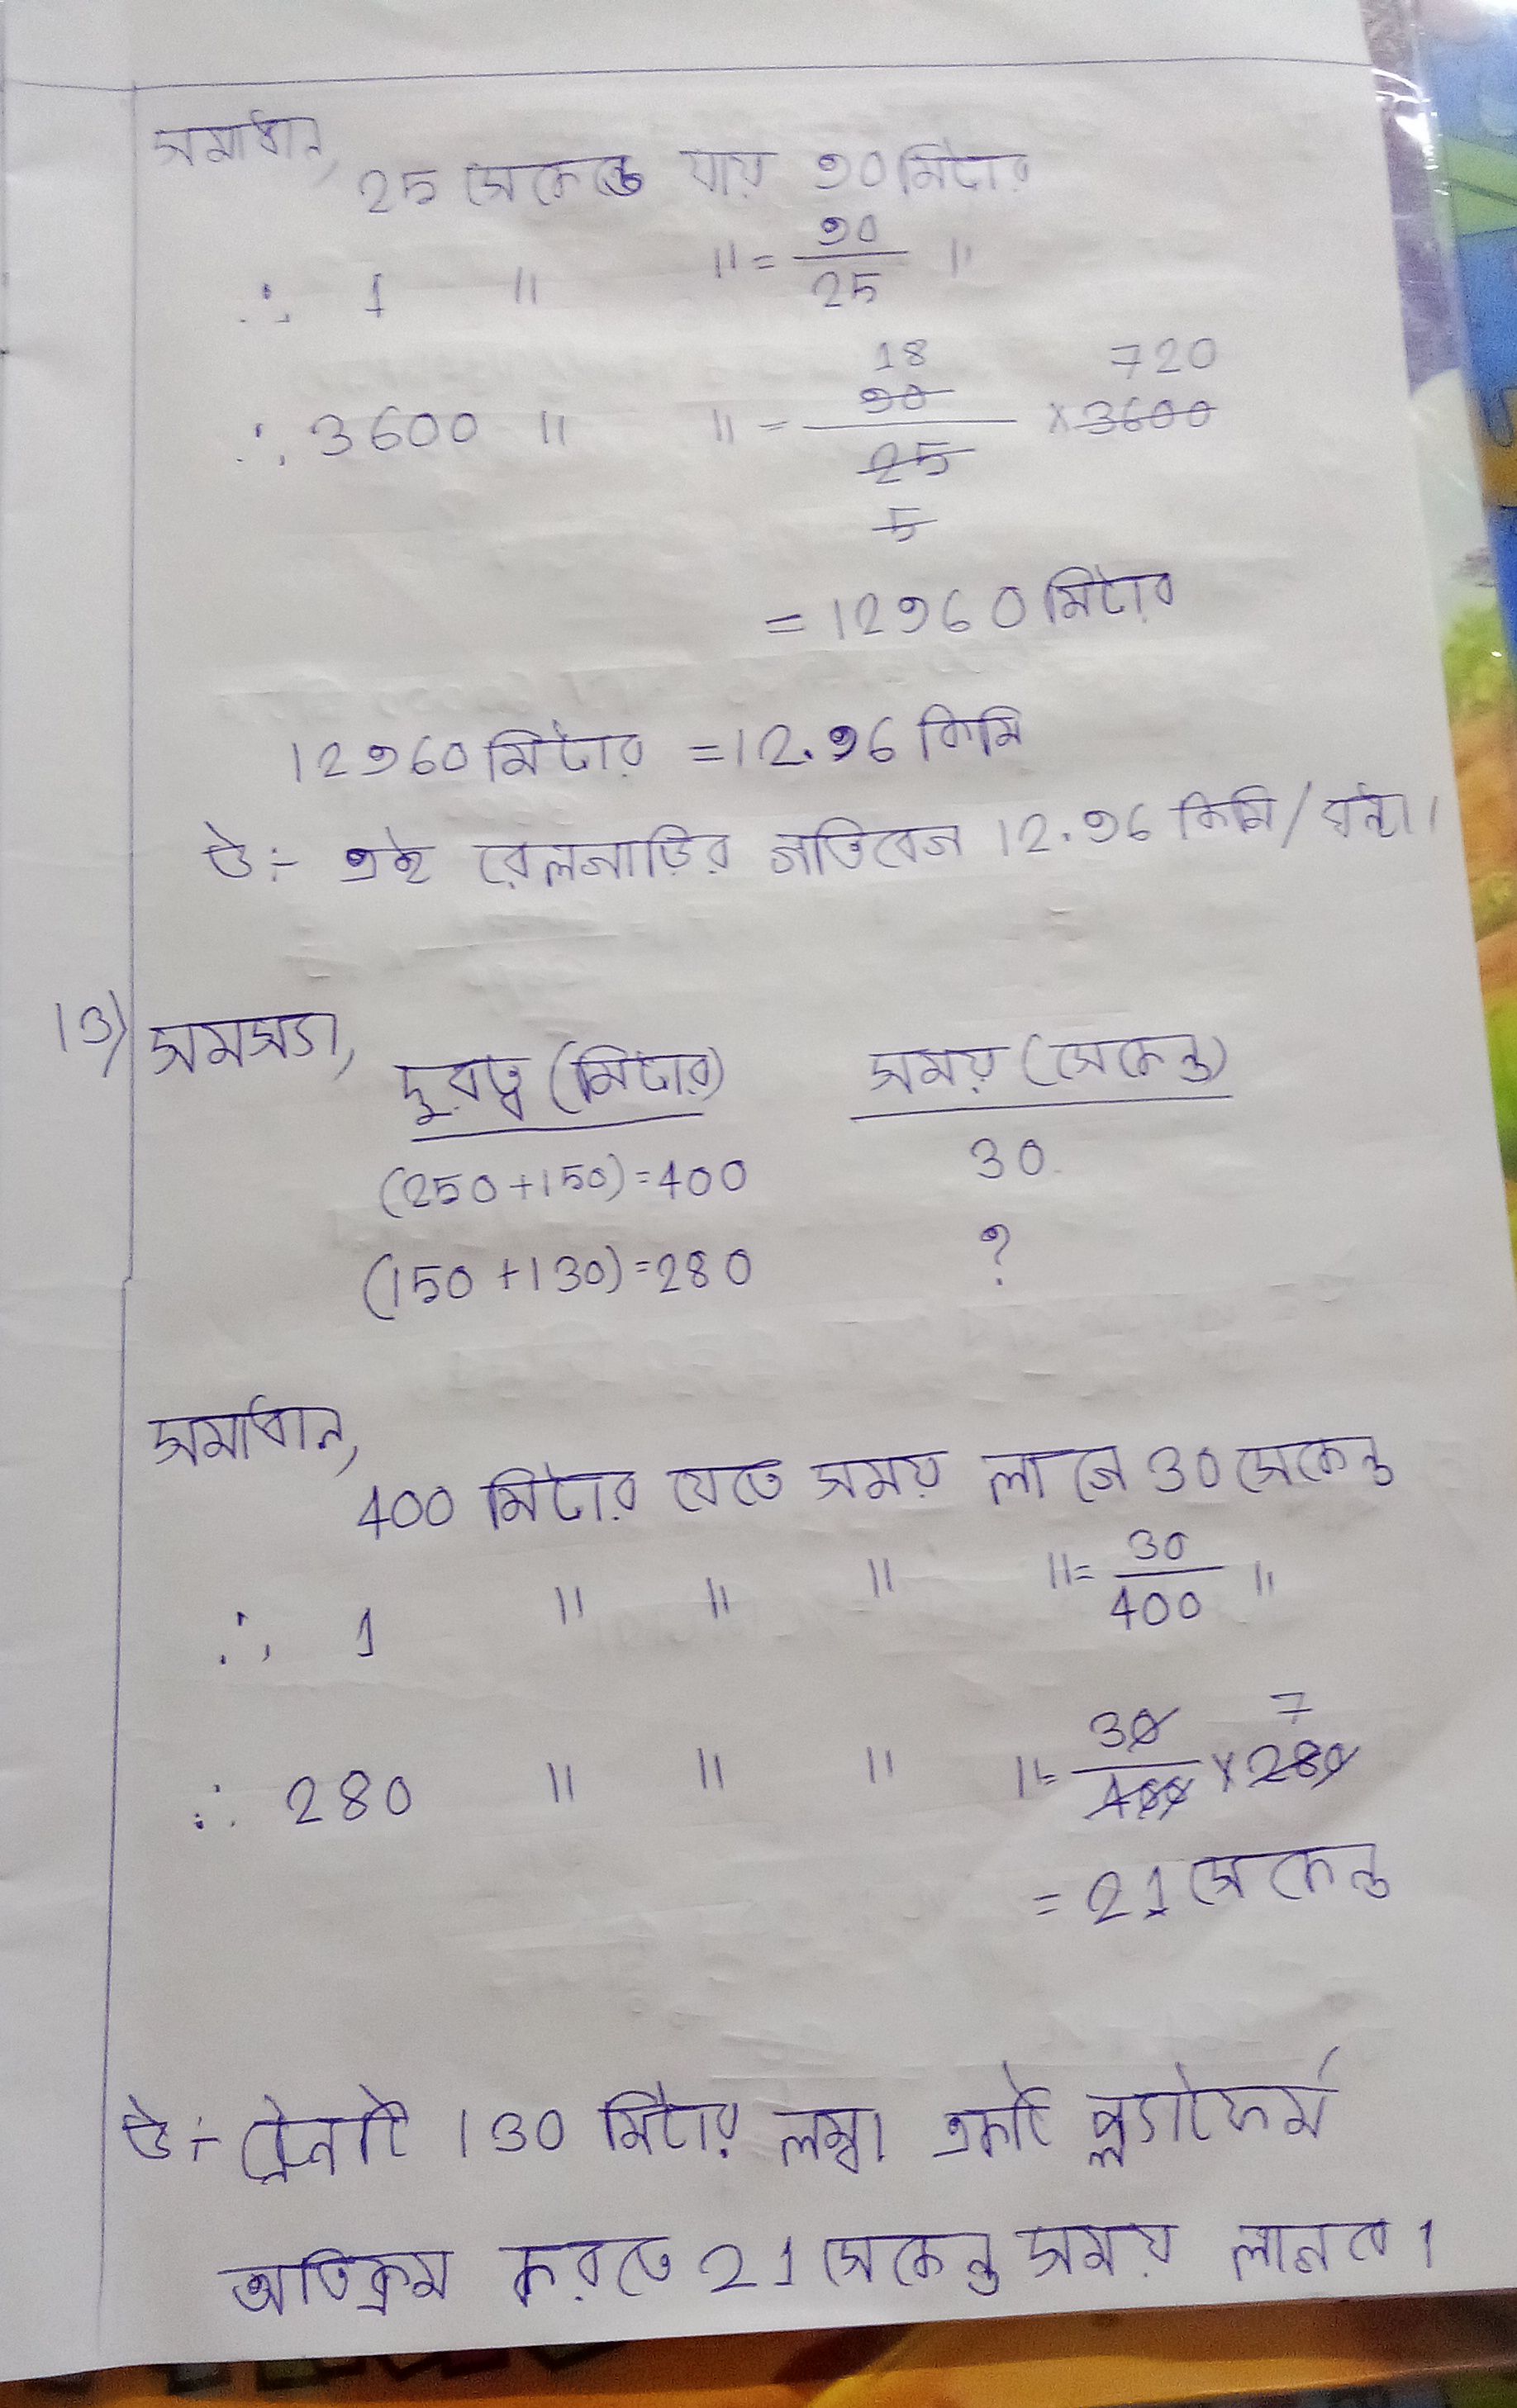 সমাধান,
25 সেকেন্ডে যায় 90 মিটার
∴ 1 " " = 90/25 "
18 720
∴ 3600 " " = 90/25 × 3600
5
= 12960 মিটার
12960 মিটার = 12.96 কিমি
উঃ- এই রেলগাড়ির গতিবেগ 12.96 কিমি/ঘন্টা।
13) সমস্যা,
দূরত্ব (মিটার) সময় (সেকেন্ড)
(250+150)=400 30
(150+130)=280 ?
সমাধান,
400 মিটার যেতে সময় লাগে 30 সেকেন্ড
∴ 1 " " " " = 30/400 "
7
∴ 280 " " " " = 30/400 × 280
= 21 সেকেন্ড
উঃ- ট্রেনটি 130 মিটার লম্বা একটি প্ল্যাটফর্ম
অতিক্রম করতে 21 সেকেন্ড সময় লাগবে।